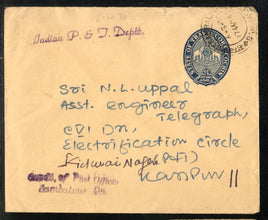 Indian P. & T. Deptt.
STATE OF TRAVANCORE-COCHIN
Sri N.L. uppal
Asst. engineer
Telegraph,
CVI Dn,
Electrification circle
Kidwai Nagar (P.H)
Kanpur 11
Supdt. of Post Offices